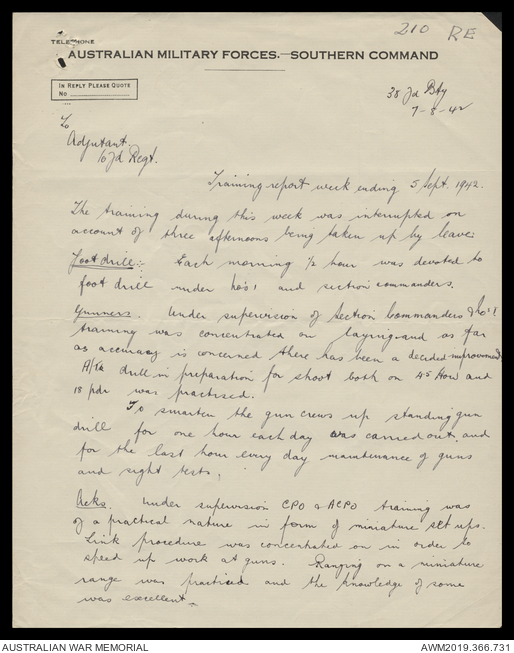 210 RE
TELEPHONE
AUSTRALIAN MILITARY FORCES.—SOUTHERN COMMAND
IN REPLY PLEASE QUOTE
No
38 Fd Bty
7-8-42
To
Adjutant.
10 Fd Regt.
Training report week ending 5 Sept. 1942.
The training during this week was interrupted on
account of three afternoons being taken up by leave.
Foot drill:- Each morning 1/2 hour was devoted to
foot drill under No's 1 and section commanders.
Gunners. Under supervision of Section Commanders & No's 1
training was concentrated on laying and as far
as accuracy is concerned there has been a decided improvement
A/Tk drill in preparation for shoot both on 4.5 How and
18 pdr was practised.
To smarten the gun crews up standing gun
drill for one hour each day was carried out, and
for the last hour every day maintenance of guns
and sight tests.
Acks. Under supervision CPO & ACPO training was
of a practical nature in form of miniature set ups.
Link procedure was concentrated on in order to
speed up work at guns. Ranging on a miniature
range was practised and the knowledge of some
was excellent.
AUSTRALIAN WAR MEMORIAL
AWM2019.366.731